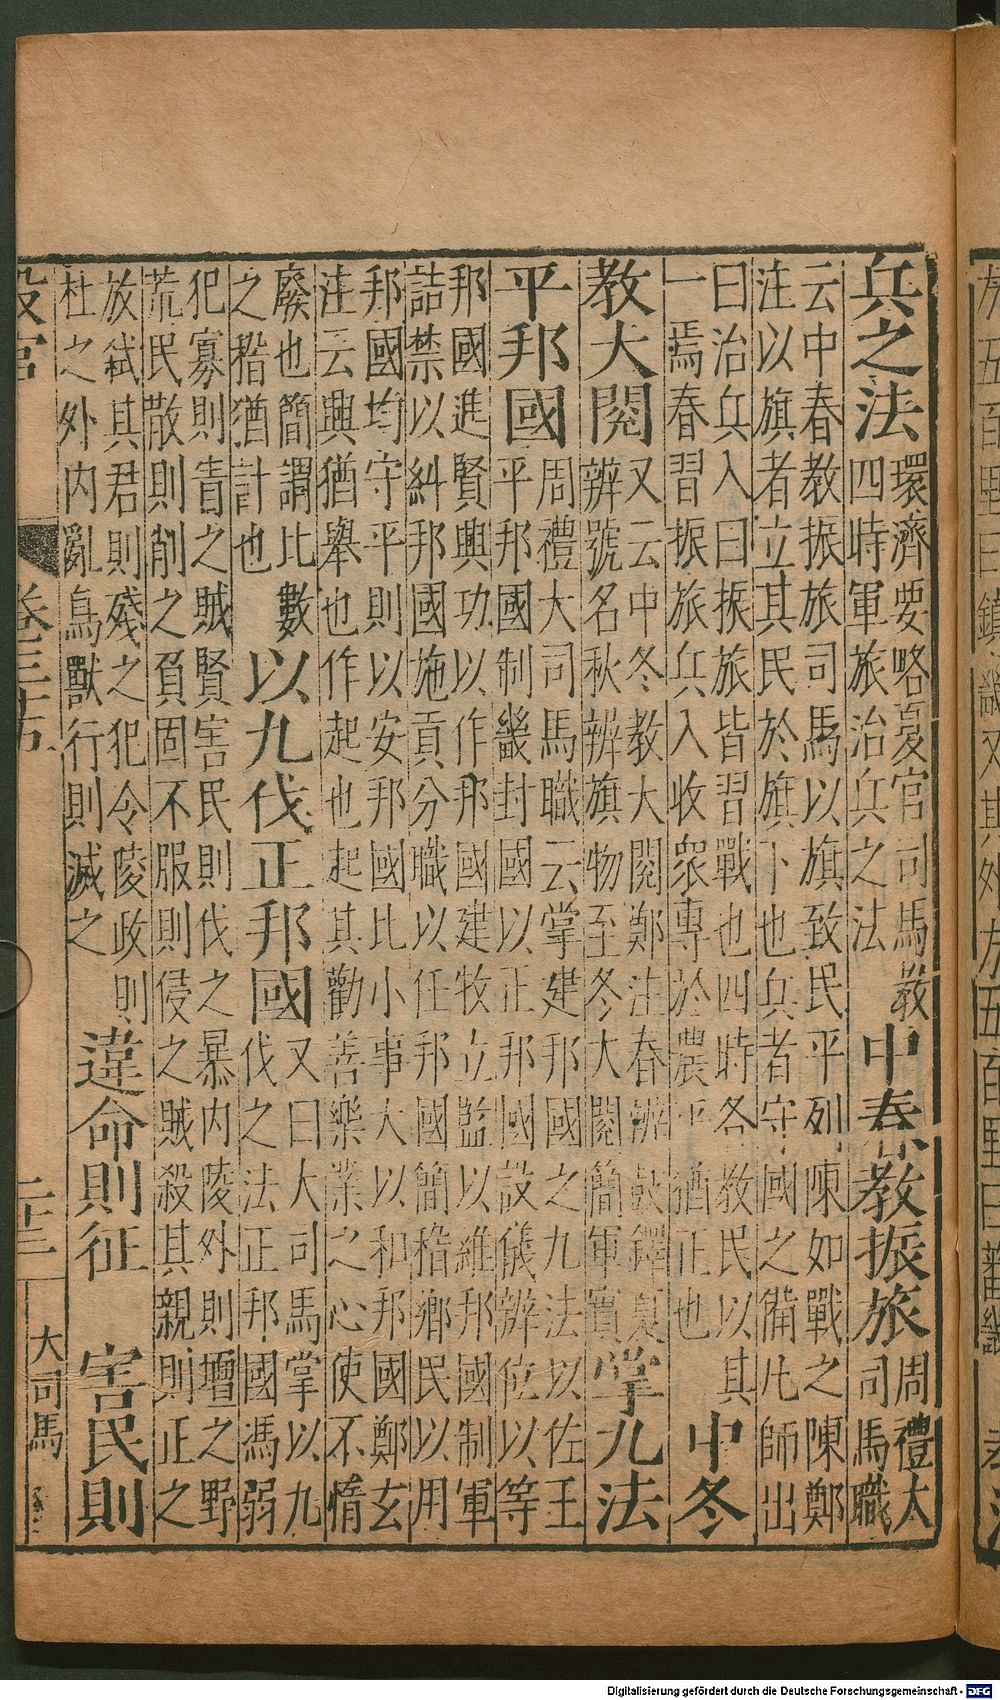 方五百里曰鎮畿又其外方五百里曰蕃畿
兵之法環濟要略夏官司馬教
四時軍旅治兵之法
中春教振旅周禮大
司馬職
云中春教振旅司馬以旗致民平列陳如戰之陳鄭
注以旗者立其民於旗下也兵者守國之備凡師出
曰治兵入曰振旅皆習戰也四時各教民以其
一焉春習振旅兵入收衆專於農平猶正也
中冬
教大閱又云中冬教大閱鄭注春辨鼓鐸夏
辨號名秋辨旗物至冬大閱簡軍實
掌九法
平邦國周禮大司馬職云掌建邦國之九法以佐王
平邦國制畿封國以正邦國設儀辨位以等
邦國進賢興功以作邦國建牧立監以維邦國制軍
詰禁以糾邦國施貢分職以任邦國簡稽鄉民以用
邦國均守平則以安邦國比小事大以和邦國鄭玄
注云興猶舉也作起也起其勸善樂業之心使不惰
廢也簡謂比數
之稽猶計也
以九伐正邦國又曰大司馬掌以九
伐之法正邦國馮弱
犯寡則眚之賊賢害民則伐之暴内陵外則壇之野
荒民散則削之負固不服則侵之賊殺其親則正之
放弒其君則殘之犯令陵政則
杜之外内亂鳥獸行則滅之
違命則征 害民則
設官 卷三十五 二十三 大司馬
Digitalisierung gefördert durch die Deutsche Forschungsgemeinschaft - DFG